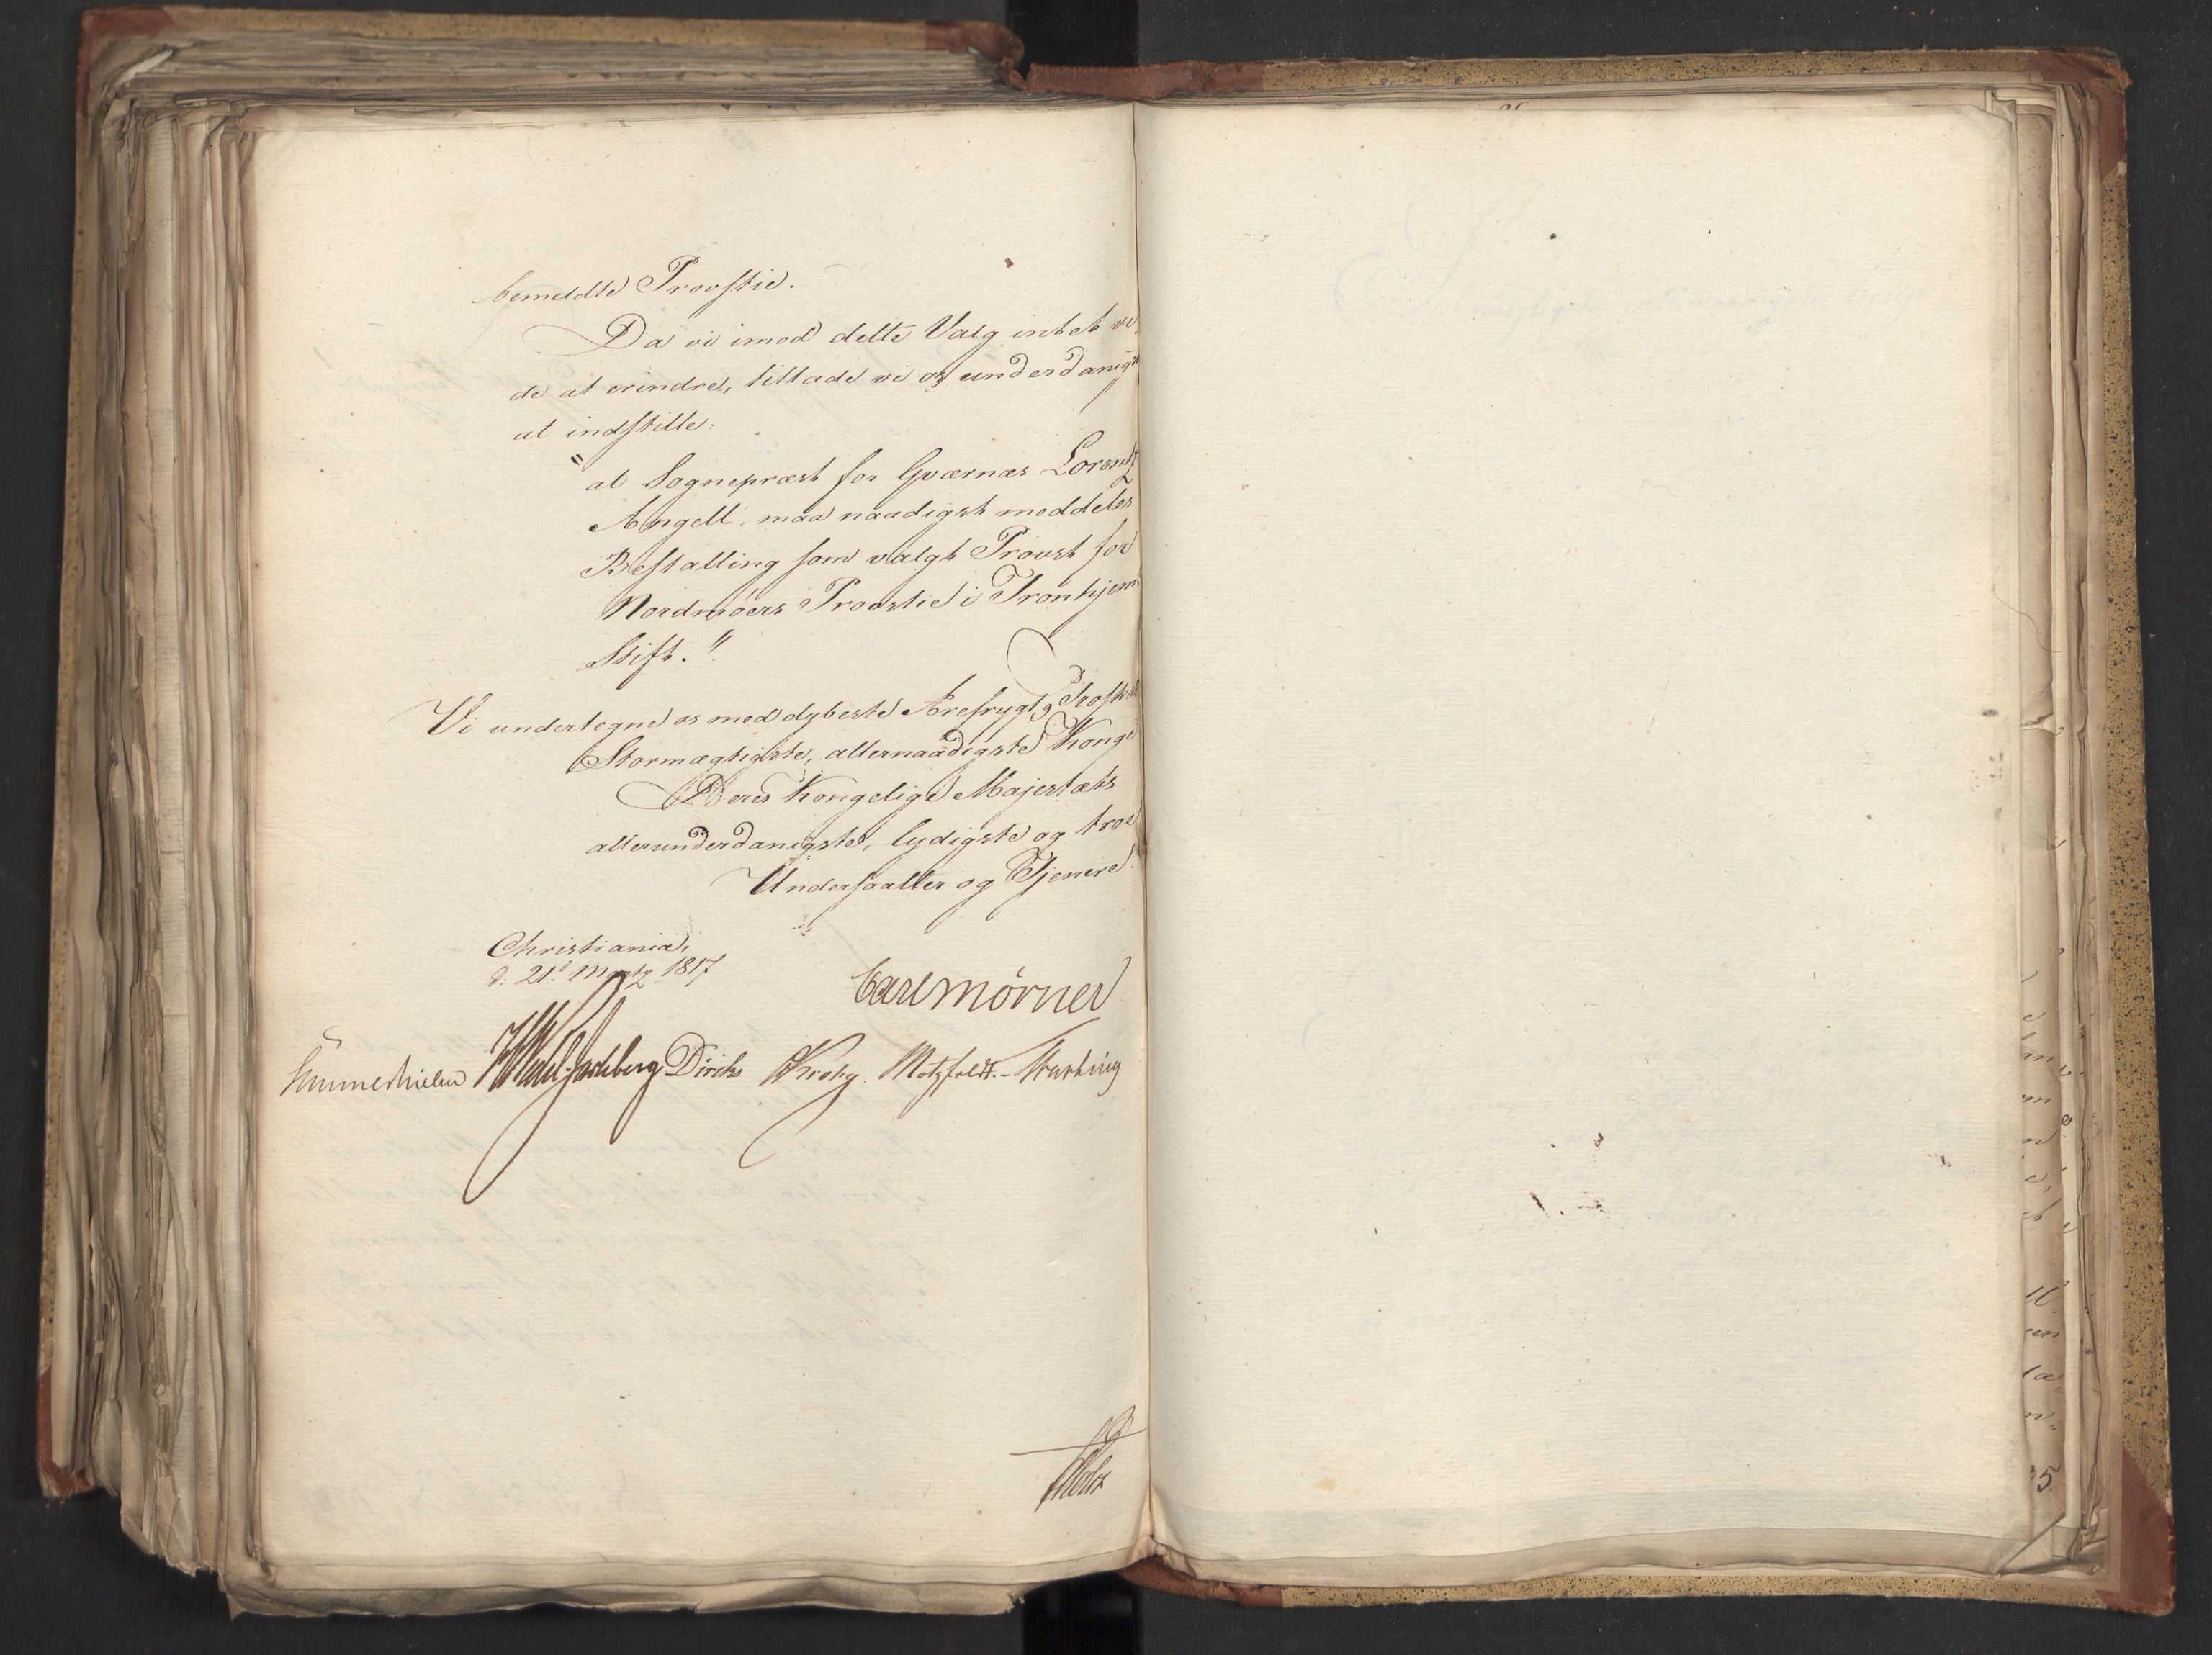 bemeldte Provstie.
Da vi imod dette Valg intet vi-
de at erindre, tillade vi os underdanigst
at indstille:
"at Sognepræst for Qværnæs Lorentz
Angell, maa naadigst meddeles
Bestalling som valgt Provst for
Nordmöers Provstie i Tronhjems
Stift."
Vi undertegne os med dybeste Ærefrygt og Troskab
Stormægtigste, allernaadigste Konge
Deres Kongelige Majestæts
allerunderdanigste, lydigste og troe
Undersaatter og Tjenere.
Christiania,
d: 21d Martz 1817
Carl Mörner
Sommerhielm HWedel-Jarlsberg Diriks Krohg. Motzfeldt.- Hauhing
Holst
5